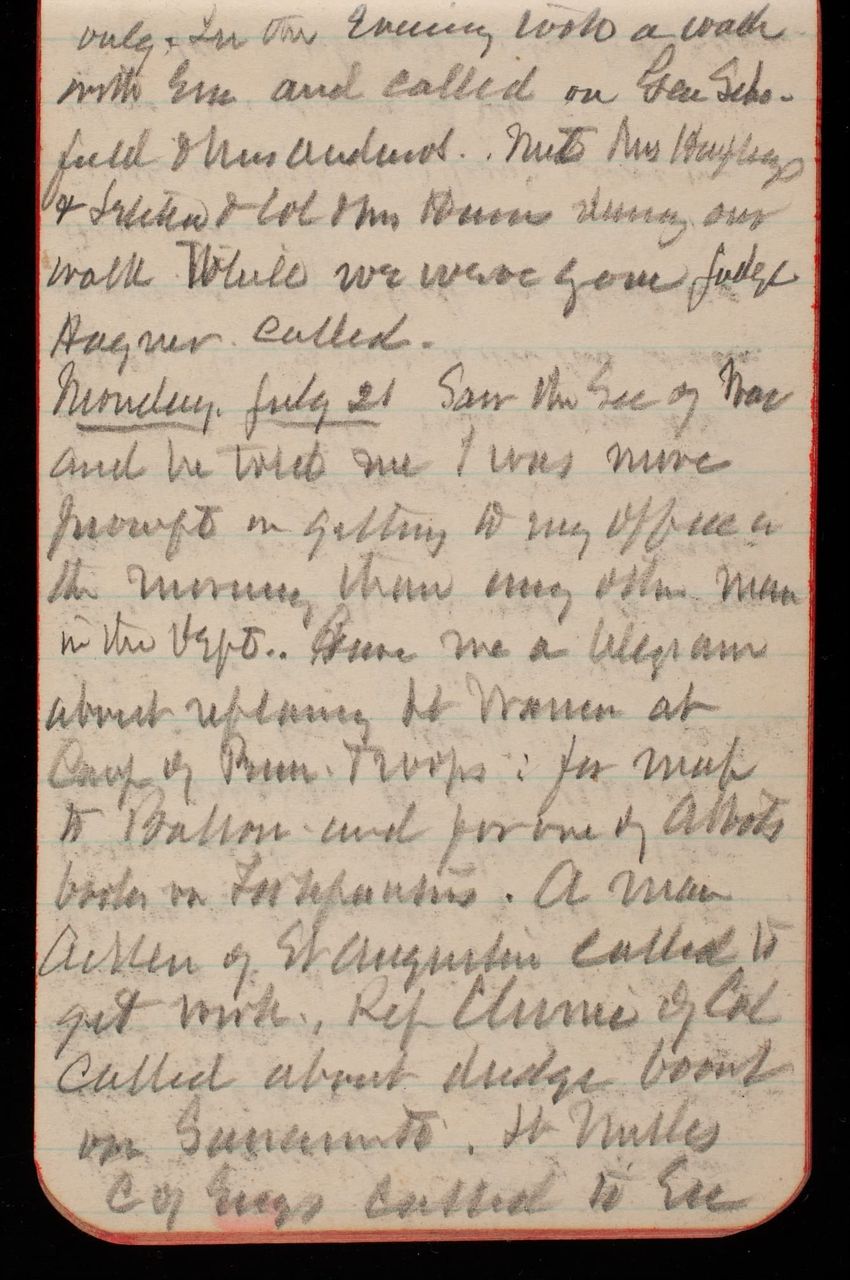 only. In the Evening took a walk
with Em and called on Gen Scho-
field & Mrs Andrews. Met Mrs
& & Col & Mrs during our
walk While we were gone Judge
Hagner called.
Monday, July 21 Saw the Sec of War
and he told me I was more
prompt in getting to my office in
the morning than any other man
in the Dept.. Gave me a telegram
about replacing Lt at
Camp of Penn. Troops: for map
to and for one of Abbots
books on Torpedoes. A man
of St Augustin called to
get work., Rep Clunie of Cal
called about dredge boat
on Sacramento. Lt
C of Engs called to see